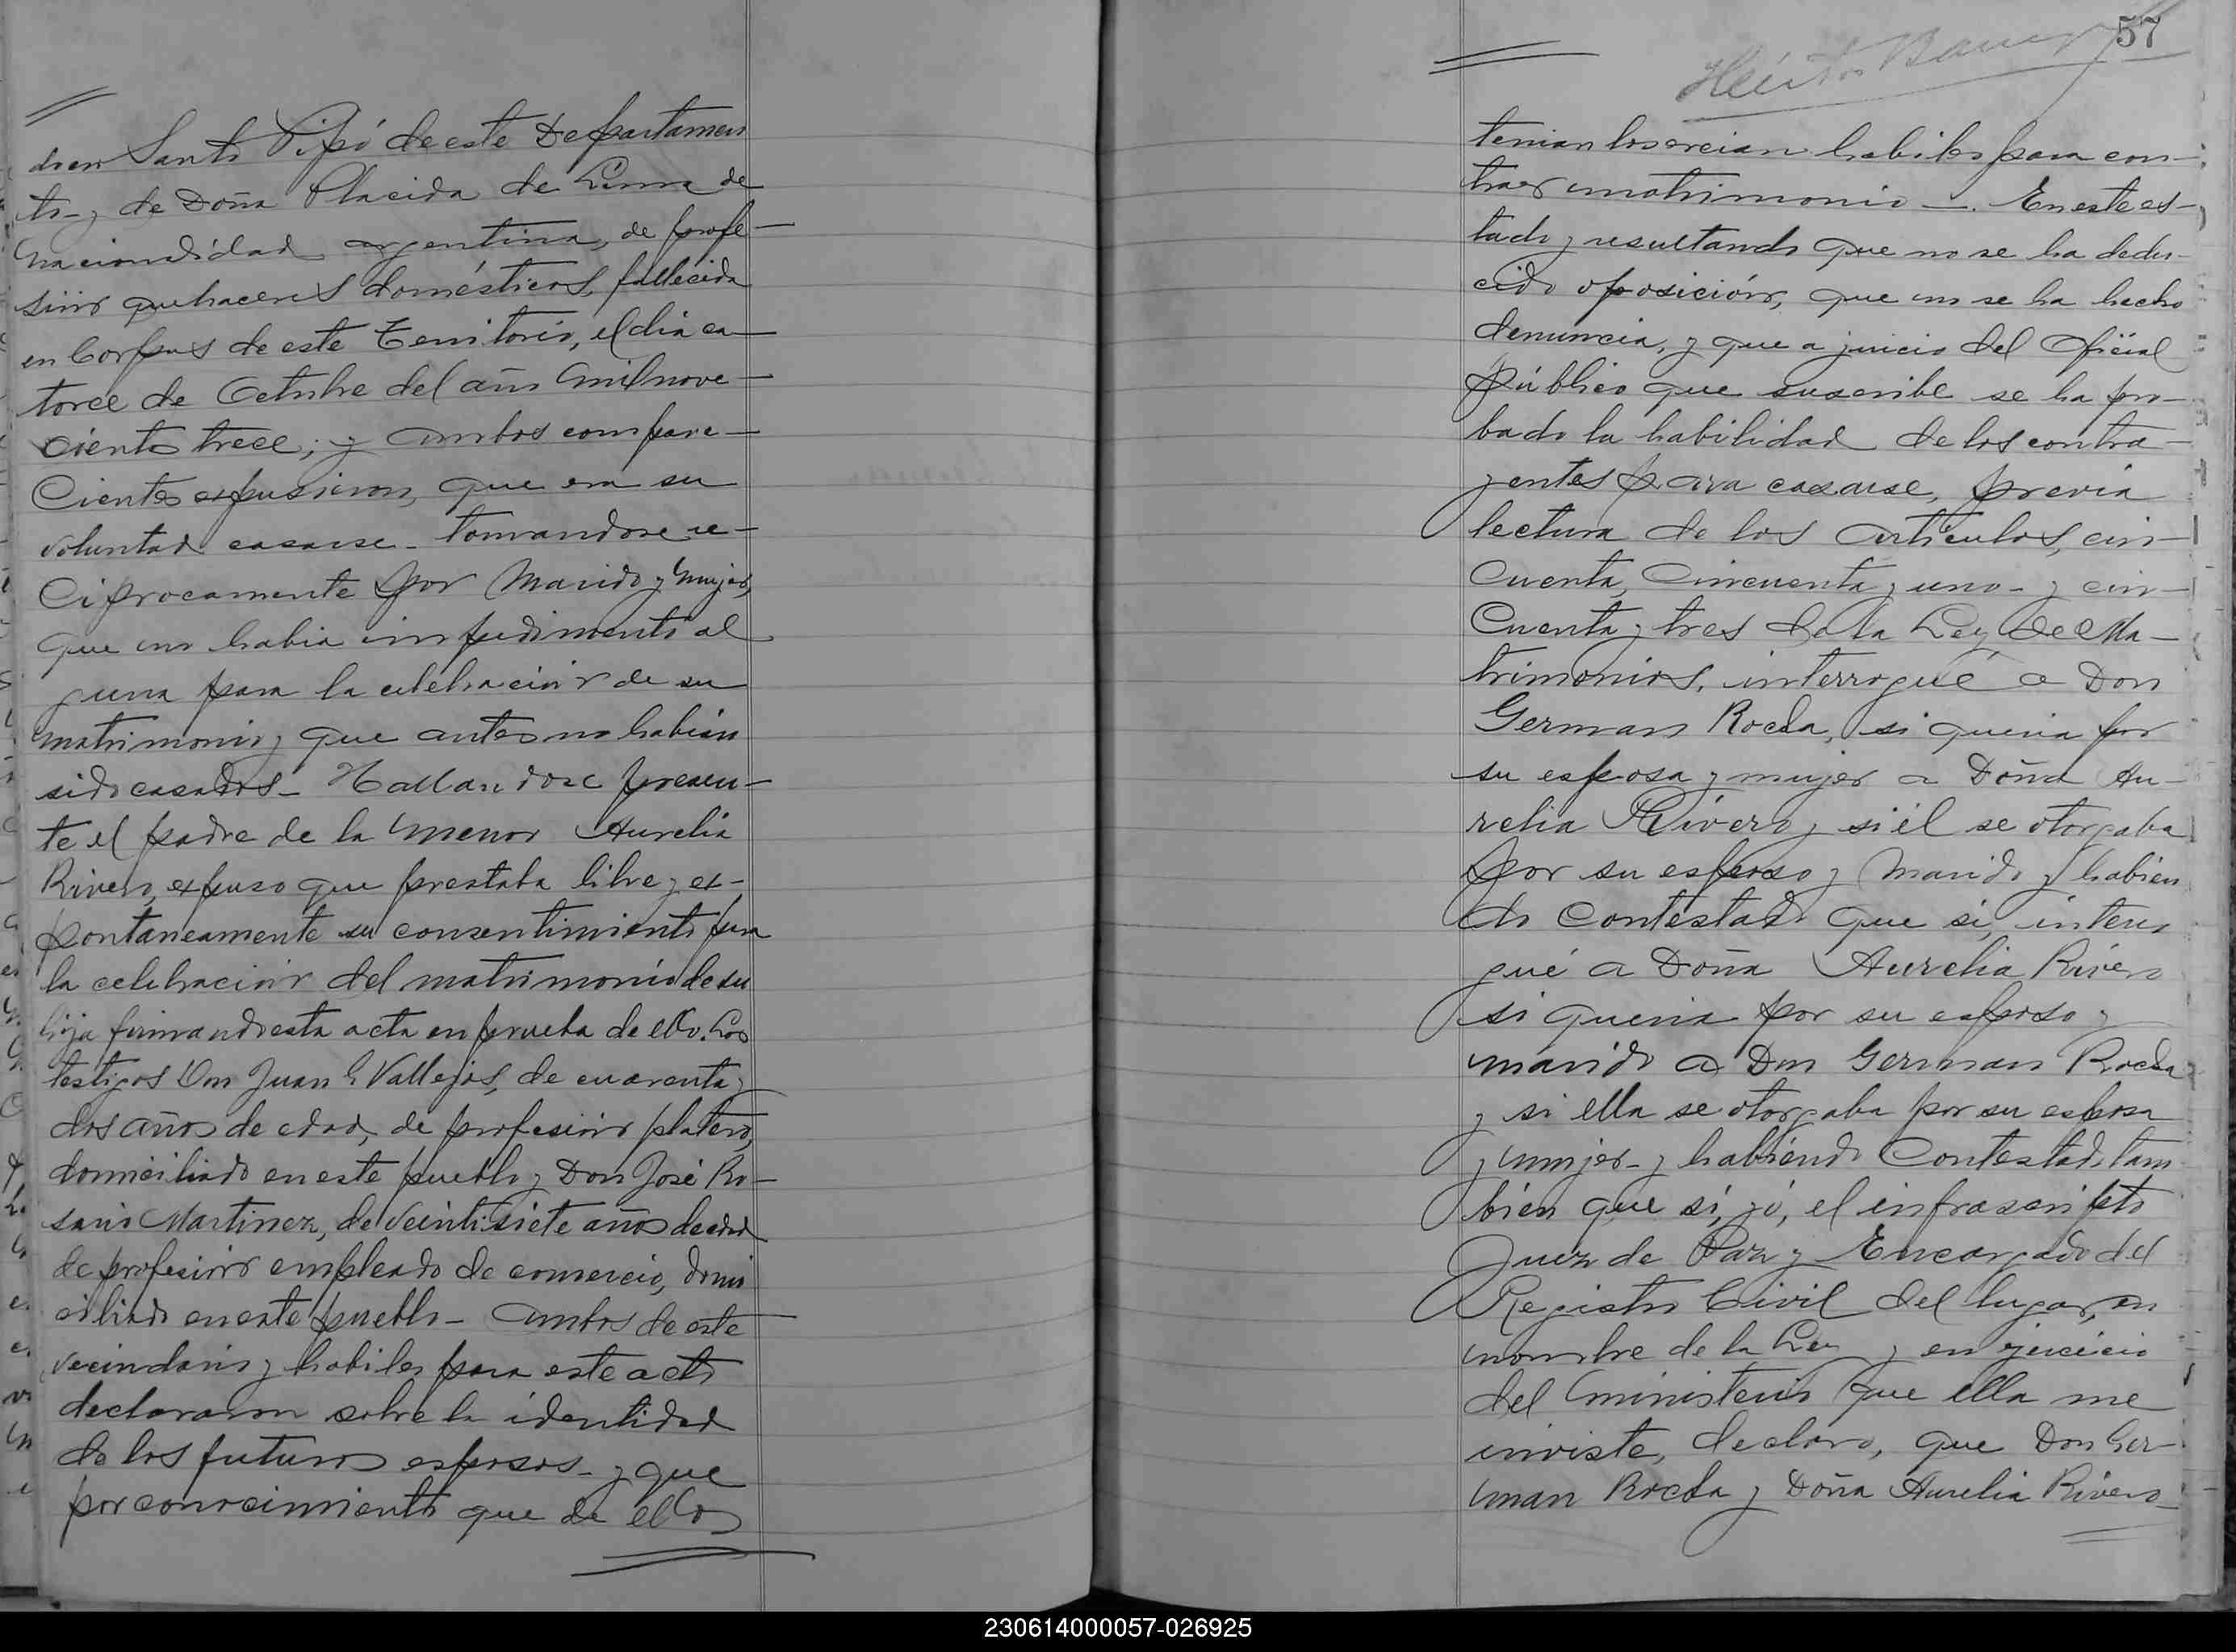 do en Santo Pipó de este Departamen
to y de Doña Placida de Lima de
nacionalidad argentina, de profe-
sión quehaceres domésticos, fallecida
en Corpus de este Territorio, el dia ca-
torce de Octubre del año mil nove-
cientos trece; y ambos compare-
cientes expusieron, que era su
voluntad casarse tomandose re-
ciprocamente por Marido y Mujer,
que no habia impedimento al
guna para la celebración de su
matrimonio y que antes no habian
sido casados - Hallandose presen-
te el padre de la menor Aurelia
Rivero, expuso que prestaba libre y es-
pontaneamente su consentimiento para
la celebración del matrimonio de su
hija firmando esta acta en prueba de ello. Los
testigos Don Juan G Vallejos, de cuarenta y
dos años de edad, de profesión platero,
domiciliado en este pueblo y Don José Ro-
sario Martinez, de veintisiete años de edad
de profesión empleado de comercio, domi
ciliado en este pueblo - ambos de este
vecindario y habiles para este acto
declararon sobre la identidad
de los futuros esposos - y que
por conocimiento que de ellos
57
Héctor
tenian los creian habiles para con-
traer matrimonio -. En este es-
tado y resultando que no se ha dedu-
cido oposición, que no se ha hecho
denuncia, y que a juicio del Oficial
Público que suscribe se ha pro-
bado la habilidad de los contra-
yentes para casarse, previa
lectura de los artículos, cin-
cuenta, cincuenta y uno - y cin-
cuenta y tres de la Ley de Ma-
trimonios, interrogué a Don
German Rocda, si queria por
su esposa y mujer a Doña Au-
relia Rivero y si él se otorgaba
por su esposo y Marido y habien
do contestado que si, interro
gué a Doña Aurelia Rivero
si queria por su esposo y
marido a Don German Rocda
y si ella se otorgaba por su esposa
y mujer - y habiendo contestado tam
bién que sí, yó, el infrascripto
Juez de Paz y Encargado del
Registro Civil del lugar, en
nombre de la Ley y en ejercicio
del ministerio que ella me
inviste, declaro, que Don Ger-
man Rocda y Doña Aurelia Rivero
230614000057-026925